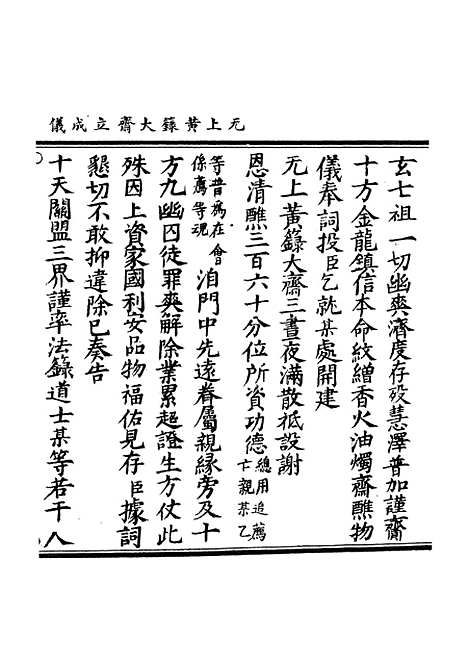 无上黄籙大齋立成儀
玄七祖一切幽爽濟度存歿慧澤普加謹齋
十方金龍鎮信本命紋繒香火油燭齋醮物
儀奉詞投臣乞就某處開建
无上黃籙大齋三晝夜滿散祇設謝
恩清醮三百六十分位所資功德總用追薦亡親某乙
等昔爲在會係薦等魂洎門中先遠眷屬親緣旁及十
方九幽囚徒罪爽解除業累超證生方仗此
殊因上資家國利安品物福佑見存臣據詞
懇切不敢抑違除已奏告
十天關盟三界謹率法籙道士某等若干人